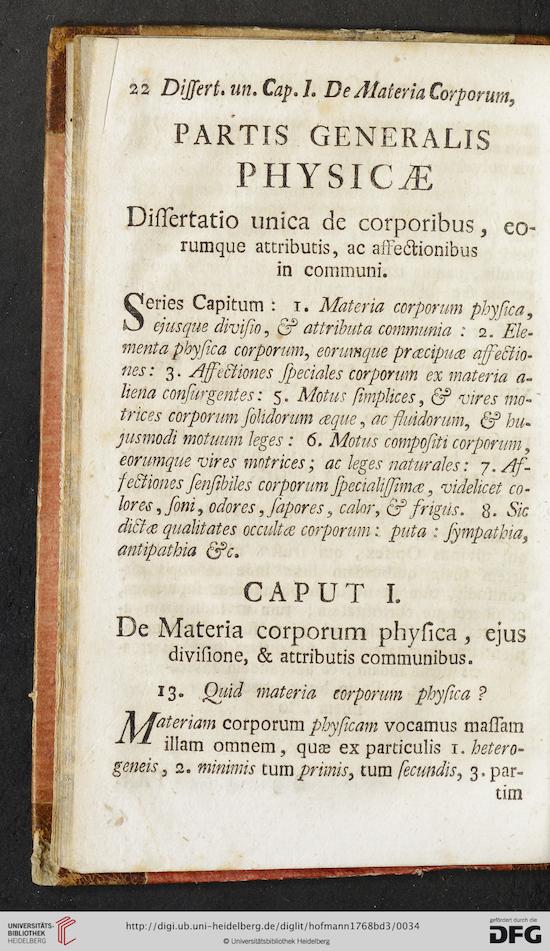 22 Diſſert. un. Cap. I. De Materia Corporum,
PARTIS GENERALIS
PHYSICÆ
Diſſertatio unica de corporibus, eo-
rumque attributis, ac affectionibus
in communi.
Series Capitum : 1. Materia corporum phyſica,
ejusque diviſio, & attributa communia : 2. Ele-
menta phyſica corporum, eorumque præcipuæ affectio-
nes: 3. Affectiones ſpeciales corporum ex materia a-
liena conſurgentes: 5. Motus ſimplices, & vires mo-
trices corporum ſolidorum æque, ac fluidorum, & hu-
jusmodi motuum leges : 6. Motus compoſiti corporum,
eorumque vires motrices; ac leges naturales: 7. Af-
fectiones ſenſibiles corporum ſpecialiſſimæ, videlicet co-
lores, ſoni, odores, ſapores, calor, & frigus. 8. Sic
dictæ qualitates occultæ corporum: puta : ſympathia,
antipathia &c.
CAPUT I.
De Materia corporum phyſica, ejus
diviſione, & attributis communibus.
13. Quid materia corporum phyſica ?
Materiam corporum phyſicam vocamus maſſam
illam omnem, quæ ex particulis 1. hetero-
geneis, 2. minimis tum primis, tum ſecundis, 3. par-
tim
UNIVERSITÄTS-
BIBLIOTHEK
HEIDELBERG
http://digi.ub.uni-heidelberg.de/diglit/hofmann1768bd3/0034
© Universitätsbibliothek Heidelberg
gefördert durch die
DFG